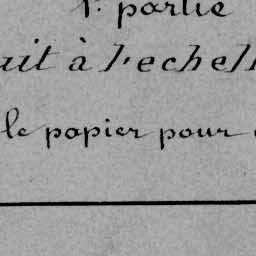 1. partie
ait à l'echell
le papier pour